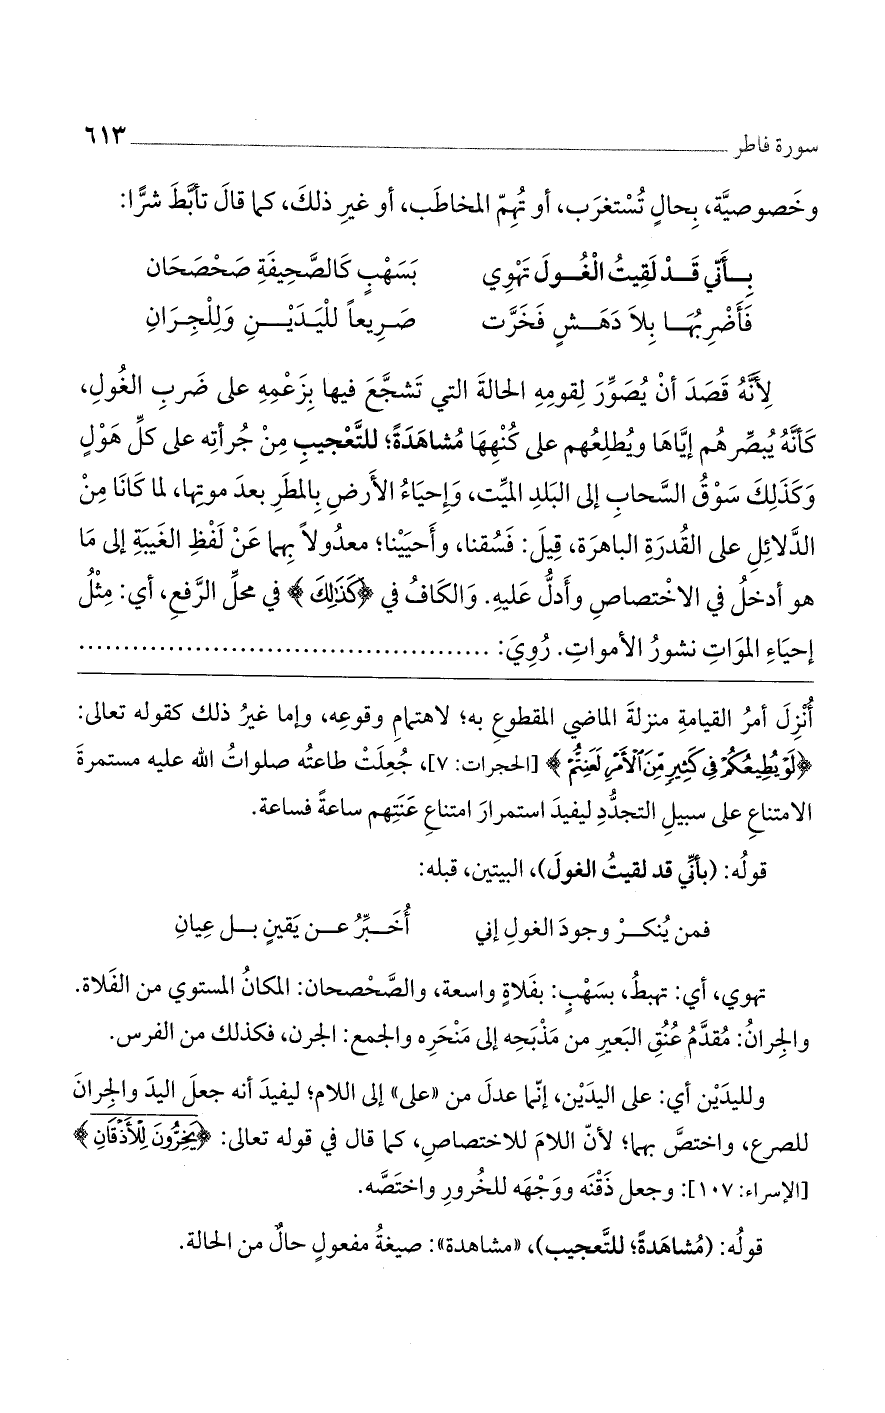 سورة فاطر ٦١٣
وخَصوصيَّة، بِحالٍ تُسْتغرَب، أو تُهِمّ المخاطَب، أو غيرِ ذلكَ، كما قالَ تأبَّطَ شرًّا:
بِــأنّي قَــدْ لَقِيتُ الْغُــولَ تَهْوِي بَسَهْبٍ كَالصَّحِيفَةِ صَحْصَحَان
فَأَضْرِبُهَــا بِلاَ دَهَــشٍ فَخَرَّت صَـرِيعاً للْيَدَيْــنِ وَلِلْجِـرَانِ
لِأنَّهُ قَصَدَ أنْ يُصَوِّرَ لِقومِهِ الحالةَ التي تَشجَّعَ فيها بِزَعْمِهِ على ضَربِ الغُولِ،
كَأنَّهُ يُبصِّرهُم إيَّاهَا ويُطلِعُهم على كُنْهِهَا مُشاهَدَةً؛ للتَّعْجيبِ مِنْ جُرأتِه على كلِّ هَوْلٍ
وَكَذَلِكَ سَوْقُ السَّحابِ إلى البَلدِ الميِّت، وَإحيَاءُ الأرضِ بِالمطَرِ بعدَ موتِها، لما كَانَا مِنْ
الدَّلائلِ على القُدرَةِ الباهرَة، قِيلَ: فَسُقنا، وأَحيَيْنا؛ معدُولاً بِهما عَنْ لَفْظِ الغَيبَةِ إلى مَا
هو أدخلُ في الاخْتصاصِ وأَدلُّ عَليهِ. وَالكَافُ في ﴿كَذَٰلِكَ﴾ في محلِّ الرَّفعِ، أي: مِثْلُ
إحيَاءِ الموَاتِ نشورُ الأمواتِ. رُوِيَ: ............................................
أُنْزِلَ أمرُ القيامةِ منزلةَ الماضي المقطوعِ به؛ لاهتمامِ وقوعِه، وإما غيرُ ذلك كقوله تعالى:
﴿لَوْ يُطِيعُكُمْ فِي كَثِيرٍ مِّنَ ٱلْأَمْرِ لَعَنِتُّمْ﴾ [الحجرات: ٧]، جُعِلَتْ طاعتُه صلواتُ الله عليه مستمرةَ
الامتناعِ على سبيلِ التجدُّدِ ليفيدَ استمرارَ امتناعِ عَنَتِهم ساعةً فساعة.
قولُه: (بأنّي قد لقيتُ الغولَ)، البيتين، قبله:
فمن يُنكــرْ وجودَ الغولِ إني أُخَــبِّرُ عــن يَقينٍ بــل عِيانِ
تهوي، أي: تهبطُ، بسَهْبٍ: بفَلاةٍ واسعة، والصَّحْصحان: المكانُ المستوي من الفَلاة.
والجِرانُ: مُقدَّمُ عُنُقِ البَعيرِ من مَذْبَحِه إلى مَنْحَرِه والجمع: الجرن، فكذلك من الفرس.
ولليدَيْن أي: على اليدَيْن، إنّما عدلَ من «على» إلى اللام؛ ليفيدَ أنه جعلَ اليدَ والجِرانَ
للصرع، واختصَّ بهما؛ لأنّ اللامَ للاختصاصِ، كما قال في قوله تعالى: ﴿يَخِرُّونَ لِلْأَذْقَانِ﴾
[الإسراء: ١٠٧]: وجعل ذَقْنَه ووَجْهَه للخُرورِ واختَصَّه.
قولُه: (مُشاهَدةً؛ للتَّعجيب)، «مشاهدة»: صيغةُ مفعولٍ حالٌ من الحالة.